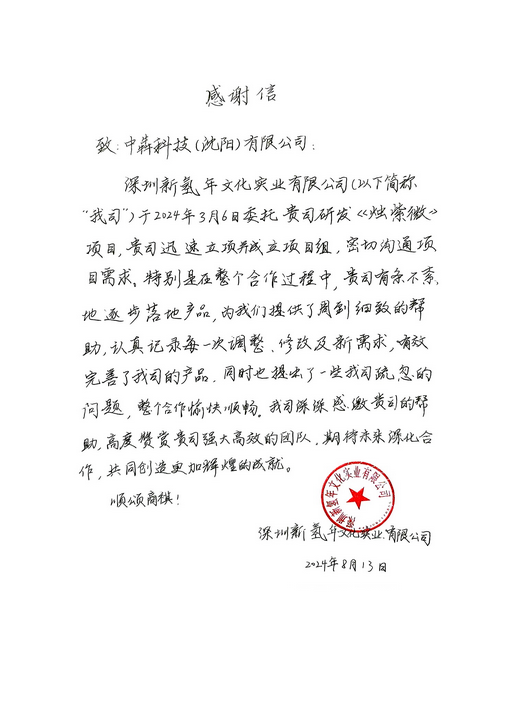 感谢信
致:中犇科技(沈阳)有限公司:
深圳新氢年文化实业有限公司(以下简称
"我司")于2024年3月6日委托贵司研发《烛紫微》
项目,贵司迅速立项并成立项目组,密切沟通项
目需求。特别是在整个合作过程中,贵司有条不紊,
地逐步落地产品,为我们提供了周到细致的帮
助,认真记录每一次调整、修改及新需求,有效
完善了我司的产品,同时也提出了一些我司疏忽的
问题,整个合作愉快顺畅。我司深深感激贵司的帮
助,高度赞赏贵司强大高效的团队,期待未来深化合
作,共同创造更加辉煌的成就。
顺颂商祺!
深圳新氢年文化实业有限公司
深圳新氢年文化实业有限公司
2024年8月13日